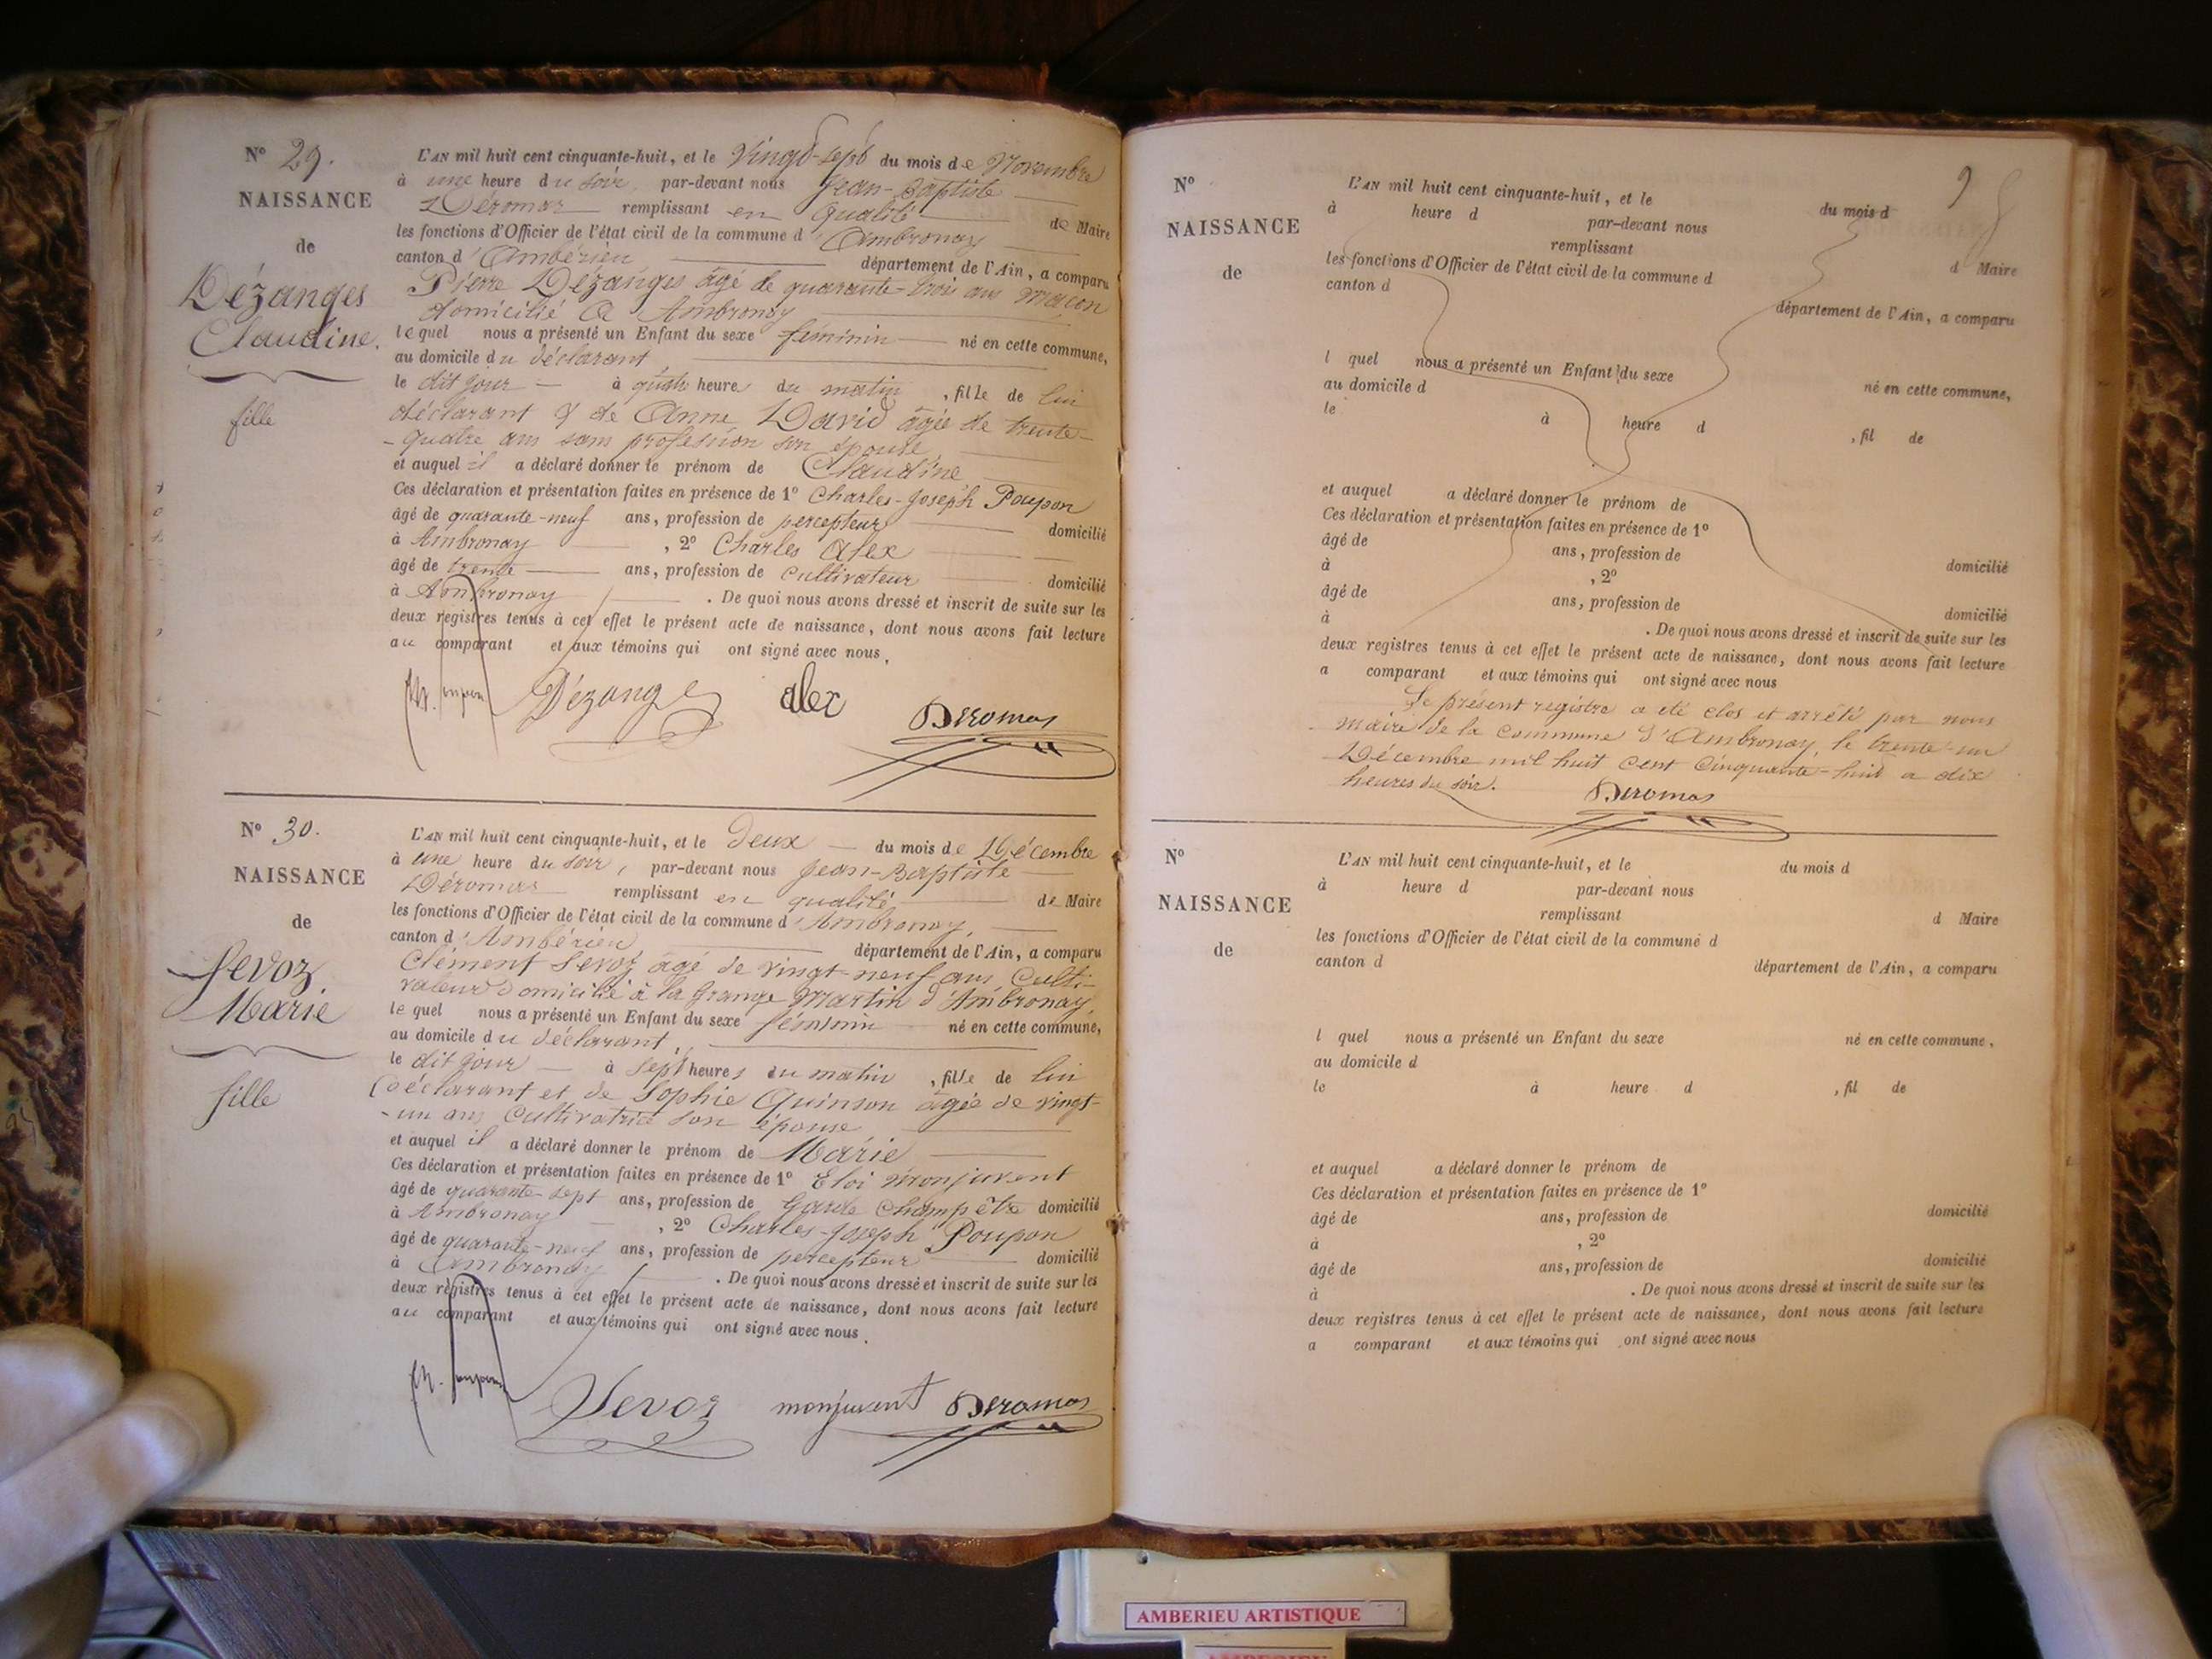 N° 29.
NAISSANCE
de
Dézanges
Claudine.
fille
L'AN mil huit cent cinquante-huit, et le Vingt-sept du mois de Novembre
à une heure du soir, par-devant nous Jean-Baptiste
Déromas remplissant en qualité de Maire
les fonctions d'Officier de l'état civil de la commune d'Ambronay
canton d'Ambérieu département de l'Ain, a comparu
Pierre Dézanges âgé de quarante-trois ans Maçon
domicilié à Ambronay
lequel nous a présenté un Enfant du sexe féminin né en cette commune,
au domicile du déclarant
le dit jour à heure du matin, fille de lui
déclarant & de Anne David âgée de trente-
-quatre ans sans profession son épouse
et auquel il a déclaré donner le prénom de Claudine
Ces déclaration et présentation faites en présence de 1° Charles-Joseph Poupon
âgé de quarante-neuf ans, profession de percepteur domicilié
à Ambronay, 2° Charles Alex
âgé de trente ans, profession de Cultivateur domicilié
à Ambronay. De quoi nous avons dressé et inscrit de suite sur les
deux registres tenus à cet effet le présent acte de naissance, dont nous avons fait lecture
au comparant et aux témoins qui ont signé avec nous.
Dézanges alex Déromas
N° 30.
NAISSANCE
de
Sevoz
Marie
fille
L'AN mil huit cent cinquante-huit, et le Deux du mois de Décembre
à une heure du soir, par-devant nous Jean-Baptiste
Déromas remplissant en qualité de Maire
les fonctions d'Officier de l'état civil de la commune d'Ambronay,
canton d'Ambérieu département de l'Ain, a comparu
Clément Sevoz âgé de vingt-neuf ans, Culti-
vateur domicilié à la Grange Martin d'Ambronay,
lequel nous a présenté un Enfant du sexe féminin né en cette commune,
au domicile du déclarant,
le dit jour à sept heures du matin, fille de lui
déclarant et de Sophie Quinson âgée de vingt-
-un ans Cultivatrice son épouse
et auquel il a déclaré donner le prénom de Marie
Ces déclaration et présentation faites en présence de 1° Eloi Monjuvent
âgé de quarante-sept ans, profession de Garde Champêtre domicilié
à Ambronay, 2° Charles-Joseph Poupon
âgé de quarante-neuf ans, profession de percepteur domicilié
à Ambronay. De quoi nous avons dressé et inscrit de suite sur les
deux registres tenus à cet effet le présent acte de naissance, dont nous avons fait lecture
au comparant et aux témoins qui ont signé avec nous.
Sevoz monjuvent Déromas
N°
NAISSANCE
de
L'AN mil huit cent cinquante-huit, et le du mois d
à heure d par-devant nous
remplissant d Maire
les fonctions d'Officier de l'état civil de la commune d
canton d département de l'Ain, a comparu
l quel nous a présenté un Enfant du sexe né en cette commune,
au domicile d
le à heure d , fil de
et auquel a déclaré donner le prénom de
Ces déclaration et présentation faites en présence de 1°
âgé de ans, profession de domicilié
à , 2°
âgé de ans, profession de domicilié
à . De quoi nous avons dressé et inscrit de suite sur les
deux registres tenus à cet effet le présent acte de naissance, dont nous avons fait lecture
a comparant et aux témoins qui ont signé avec nous
Le présent registre a été clos et arrêté par nous
maire de la Commune d'Ambronay, le trente-un
Décembre mil huit cent cinquante-huit à dix
heures du soir.
Déromas
N°
NAISSANCE
de
L'AN mil huit cent cinquante-huit, et le du mois d
à heure d par-devant nous
remplissant d Maire
les fonctions d'Officier de l'état civil de la commune d
canton d département de l'Ain, a comparu
l quel nous a présenté un Enfant du sexe né en cette commune,
au domicile d
le à heure d , fil de
et auquel a déclaré donner le prénom de
Ces déclaration et présentation faites en présence de 1°
âgé de ans, profession de domicilié
à , 2°
âgé de ans, profession de domicilié
à . De quoi nous avons dressé et inscrit de suite sur les
deux registres tenus à cet effet le présent acte de naissance, dont nous avons fait lecture
a comparant et aux témoins qui ont signé avec nous
AMBERIEU ARTISTIQUE